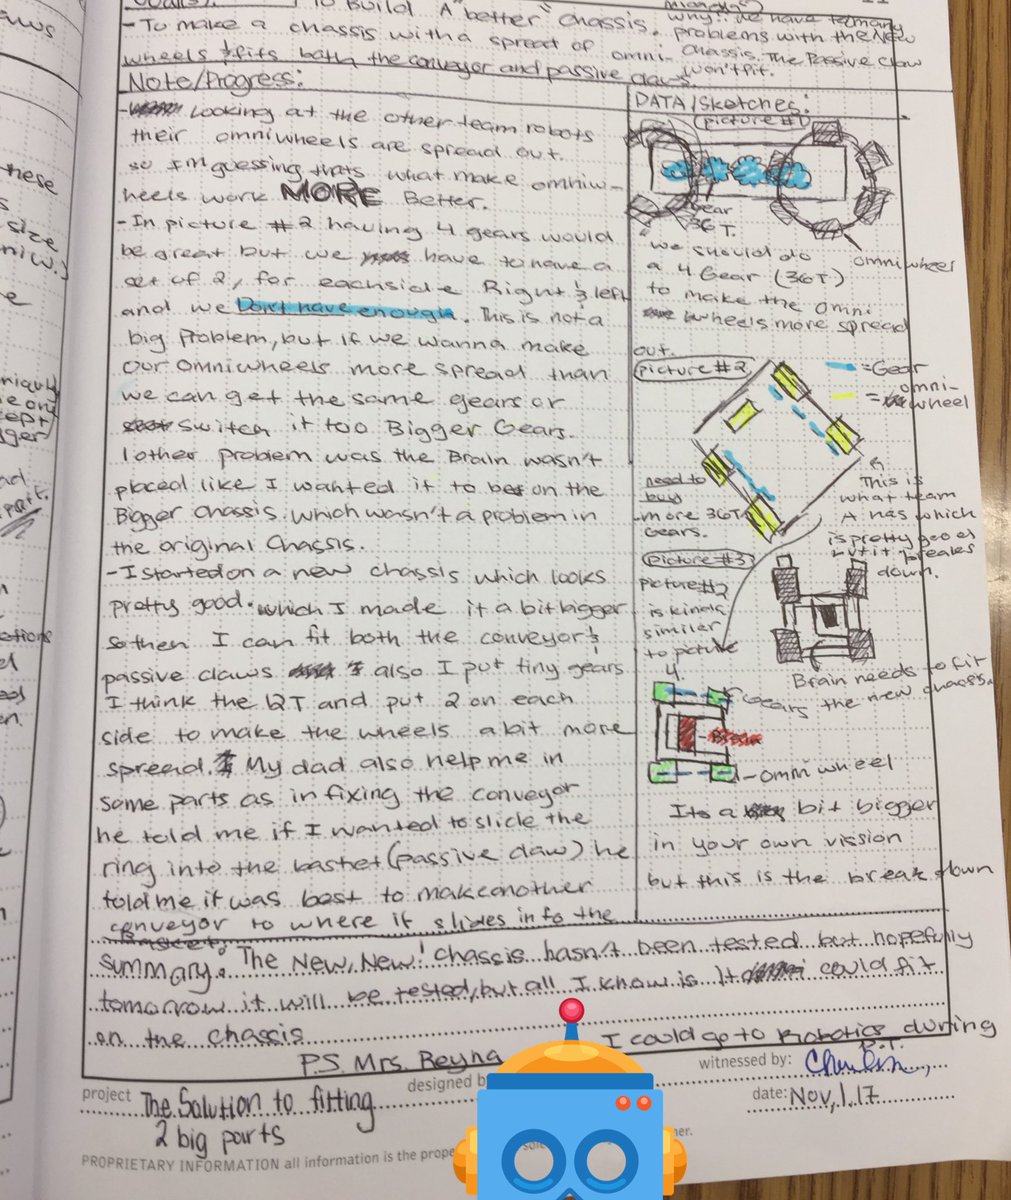 aws
To Build A "better" chassis.
- To make a chassis with a spread of omni-
wheels & fits both the conveyor and passive claws.
why? we have to many
problems with the New
chassis. The Passive Claw
won't fit.
these
size
niw.)
Note/Progress:
- Looking at the other team robots
their omniwheels are spread out.
so I'm guessing thats what make omniw-
heels work MORE Better.
- In picture #2 having 4 gears would
be great but we have to have a
set of 2, for eachside Right & left
and we Don't have enough. This is not a
big Problem, but if we wanna make
our omniwheels more spread than
we can get the same gears or
switch it too Bigger Gears.
1 other problem was the Brain wasn't
placed like I wanted it to be on the
Bigger chassis. which wasn't a problem in
the original chassis.
- I started on a new chassis which looks
pretty good. which I made it a bit bigger
so then I can fit both the conveyor &
passive claws & also I put tiny gears
I think the 12T and put 2 on each
side to make the wheels a bit more
spread. My dad also help me in
some parts as in fixing the conveyor
he told me if I wanted to slide the
ring into the basket (passive claw) he
told me it was best to make another
conveyor to where it slides into the
DATA/Sketches:
picture #1
Gear
36T.
omniwheel
"we should do
a 4 Gear (36T)
to make the omni
wheels more spread
out.
picture #2
=Gear
= omni-
wheel
need to
buy
more 36T
Gears.
This is
what team
A has which
is pretty good
but it breaks
down.
picture #3
picture #2
is kinda
similar
to picture
4.
Brain needs to fit
the new chassis.
Gears
-omni wheel
Its a bit bigger
in your own vission
but this is the break down
summary: The New, New! chassis hasn't been tested but hopefully
tomorrow it will be tested, but all I know is It could fit
on the chassis
P.S. Mrs. Reyna
I could go to Robotics during
P.T.
project The Solution to fitting
2 big parts
designed by
witnessed by:
date: Nov, 1. 17
PROPRIETARY INFORMATION all information is the prope